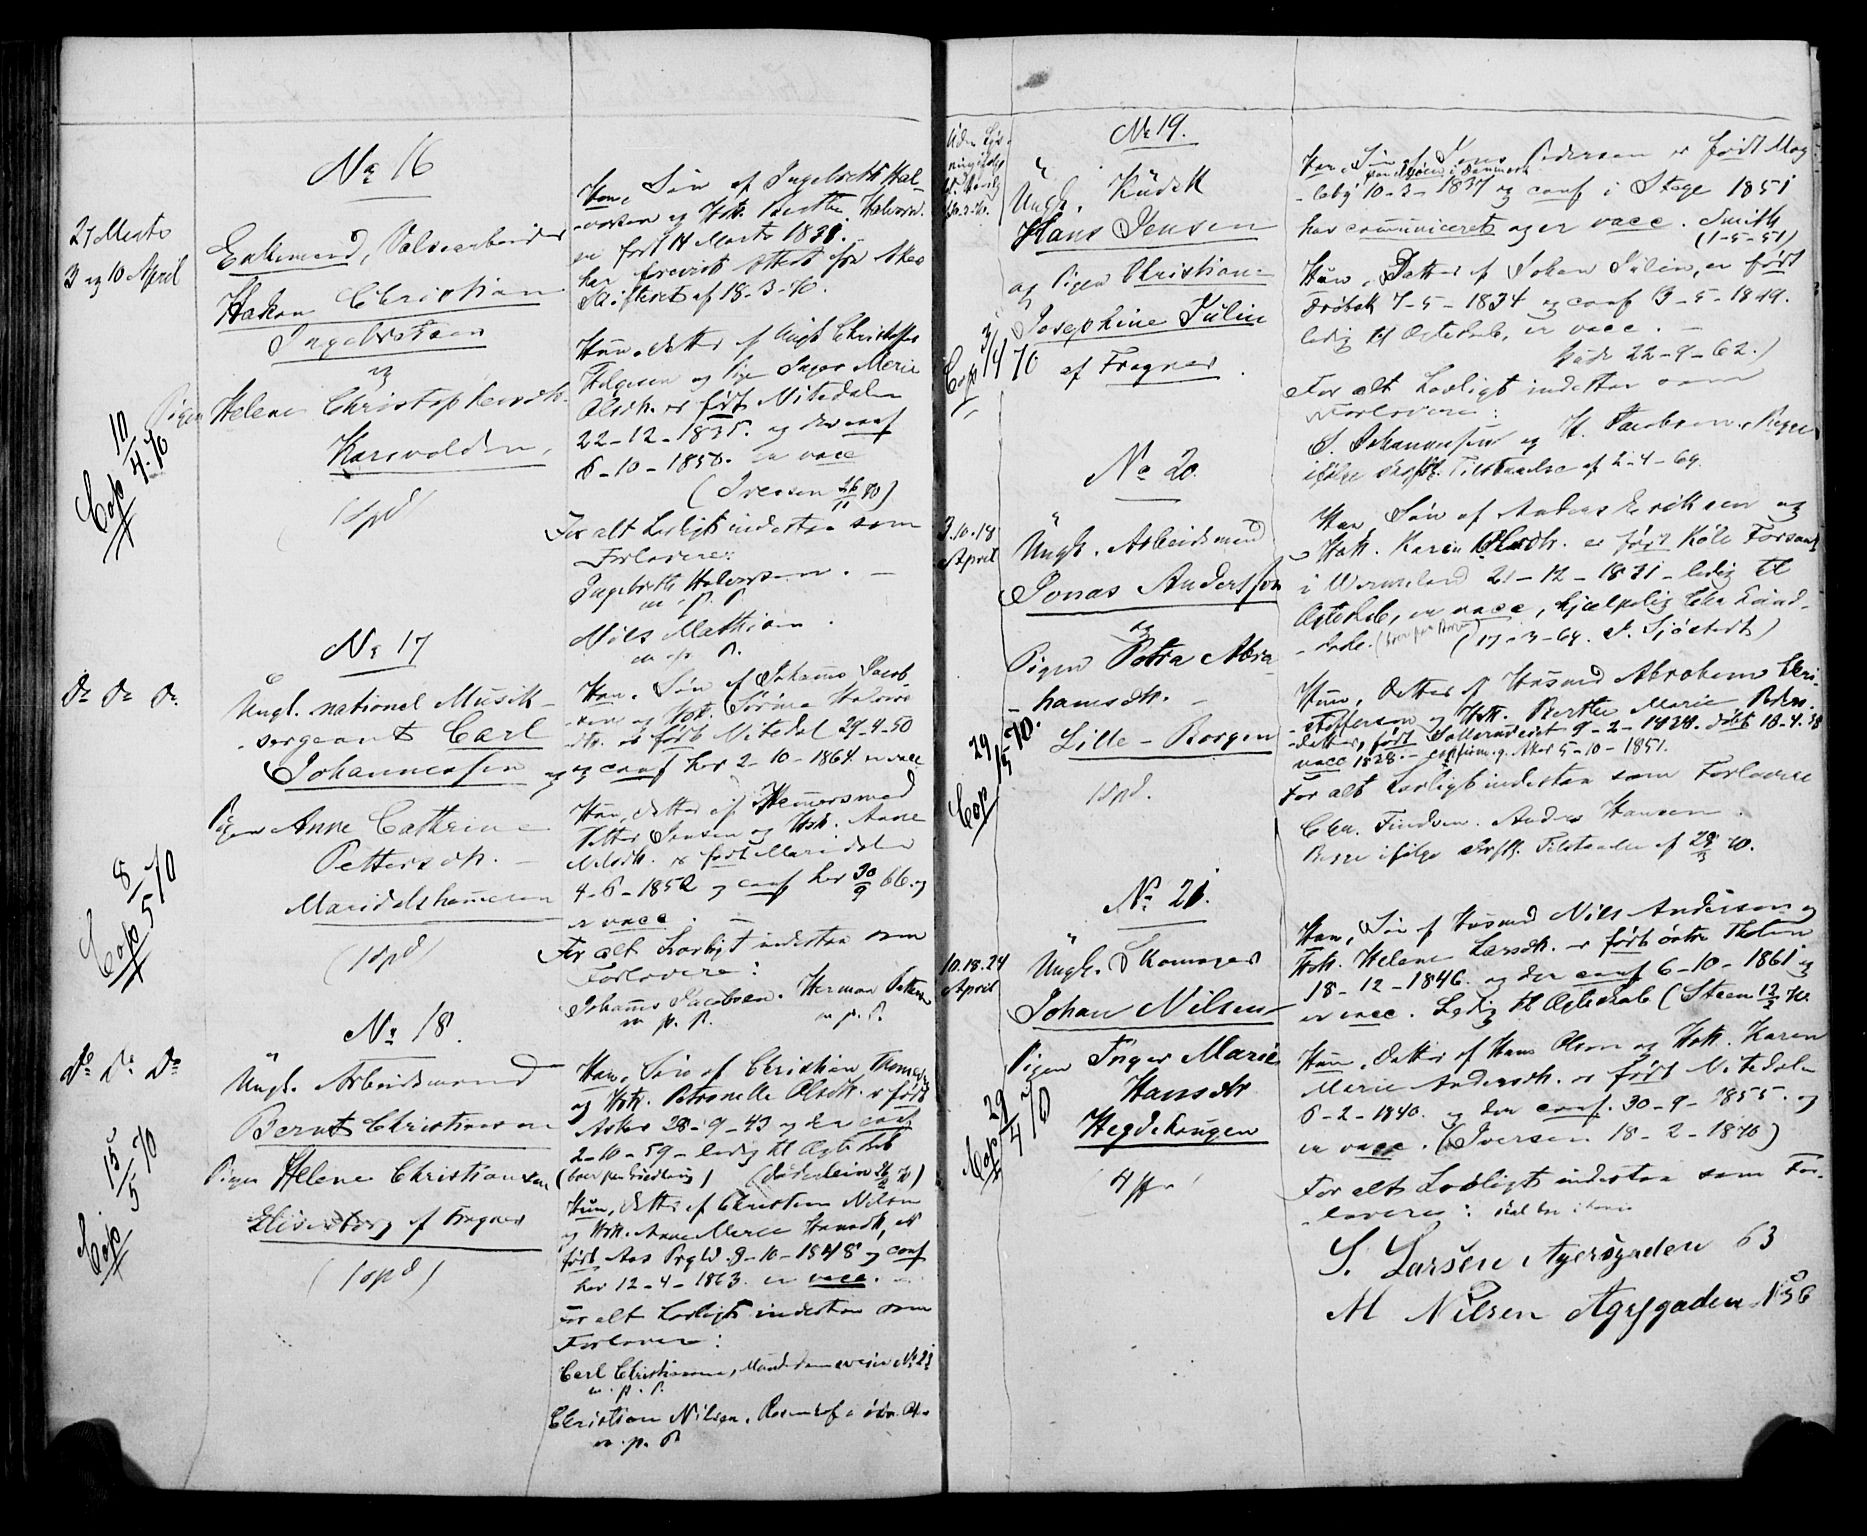 No 16
27 Marts
3 og 10 April
Enkemand, Valsearbeider
Hakon Christian
Ingebretsen
og
Pigen Helene Christophersdtr.
Karsvolden,
(1 Spd)
Cop 10/4.70
Han, Søn af Ingebreth Hal-
-vorsen og Hstr. Berthe Halvorsd.
er født 11 Marts 1838.
har frevist Attest fra Aker
Skifteret af 18-3-70.
Hun, datter af Ungk Christoffer
Helgesen og Pige Inger Marie
Olsdtr. er født Nitedalen
22-12-1835. og der conf
6-10-1850. er vacc
(Iversen 26/11 )
For alt Lovligt indestaa som
Forlovere:
Ingebreth Halvorsen.
m. p. P.
Nils Mathisen.
m. p. P.
No 17
do do do
Ungk. national Musik-
-sergeant Carl
Johannessen og
Pigen Anne Cathrine
Pettersdtr.
Maridalshammeren
(1 Spd)
Cop 8/5 70
Han, Søn af Johannes Jacob-
-sen og Hstr. Sørine Halvors-
dtr. er født Nitedal 29-4-50
og conf her 2-10-1864. er vacc
Hun, datter af Hammersmed
Petter Jensen og Hstr. Anne
Nilsdtr. er født Maridalen
4-6-1852 og conf her 30/9 66. og
er vacc.
For alt Lovligt indestaa som
Forlovere:
Johannes Jacobsen. Herman Pettersen
m. p. P. m. p. P.
No 18.
do do do
Ungk. Arbeidsmand
Bernt Christiansen
Pigen Helene Christiansen
Elisenborg af Frogner
(1 Spd)
Cop 15/5 70
Han, Søn af Christian Thomesen
og Hstr. Petronelle Olsdtr. er født
Asker 28-9-43 og der conf
2-10-59 - ledig til Ægteskab
Hun, datter af Christen Nilsen
og Hstr. Anne Marie Hansdtr, er
født Aas Prgld. 9-10-1848 og conf
her 12-4-1863. er vacc.
For alt Lovligt indestaa som
Forlovere:
Carl Christiansen,
m. p. P.
Christian Nilsen,
m. p. P.
No 19.
Ungk. Kudsk
Hans Jensen
og Pigen Christiane
Josephine Julin
af Frogner.
Cop 3/4 70
Han, Søn af Jens Pedersen er født Mag-
paa Møen i Danmark
-leby 10-3-1837 og conf i Stege 1851
har communiceret og er vacc. Smith
(1-5-51)
Hun, Datter af Johan Julin, er født
Drøbak 7-5-1834 og conf 13-5-1849.
ledig til Ægteskab, er vacc.
22-9-62.)
For alt Lovligt indestaa som
Forlovere:
S. Johannessen og H. Jacobsen, Begge
ifølge skriftl. Tilstaaelse af 2-4-69.
No 20.
3.10.18
April
Ungk. Arbeidsmand
Jonas Andersson
og
Pigen Petra Abra-
-hamsdtr.
Lille-Borgen
1 Spd.
Cop 29/5 70.
Han, Søn af Anders Eriksen og
Hstr. Karin Olsdtr. er født Kôla Forsaml
i Wermeland 21-12-1831 - ledig til
Ægteskab, er vacc,
(17-3-69. Sjöstedt)
Hun, Datter af Husmd Abraham Chri-
-stoffersen og Hstr. Berthe Marie Peders-
-datter, født 9-2-1828. døbt 18-4-28
vacc 1828. - confirm. g. Aker 5-10-1851.
For alt Lovligt indestaa som Forlovere
Chr. Findsen. Anders Hansen.
Begge ifølge skriftl. Tilstaaelse af 29/3 70.
No 21.
10.18.24
April
Ungk. Skomager
Johan Nilsen
Pigen Inger Marie
Hansdtr
Hegdehaugen
Cop 29/4 70
Han, Søn af Husmd Nils Andersen og
Hstr. Helene Larsdtr. er født østre Thoten
18-12-1846. og der conf 6-10-1861 og
er vacc. Ledig til Ægteskab (Steen 12/2 70.
Hun, Datter af Hans Olsen og Hstr. Karen
Marie Andersdtr. er født Nitedalen
6-2-1840. og der conf. 30-9-1855. og
er vacc. (Iversen 18-2-1870)
For alt Lovligt indestaa som For-
-lovere:
S. Larsen Agersgaden 63
M Nilsen Agersgaden No 56